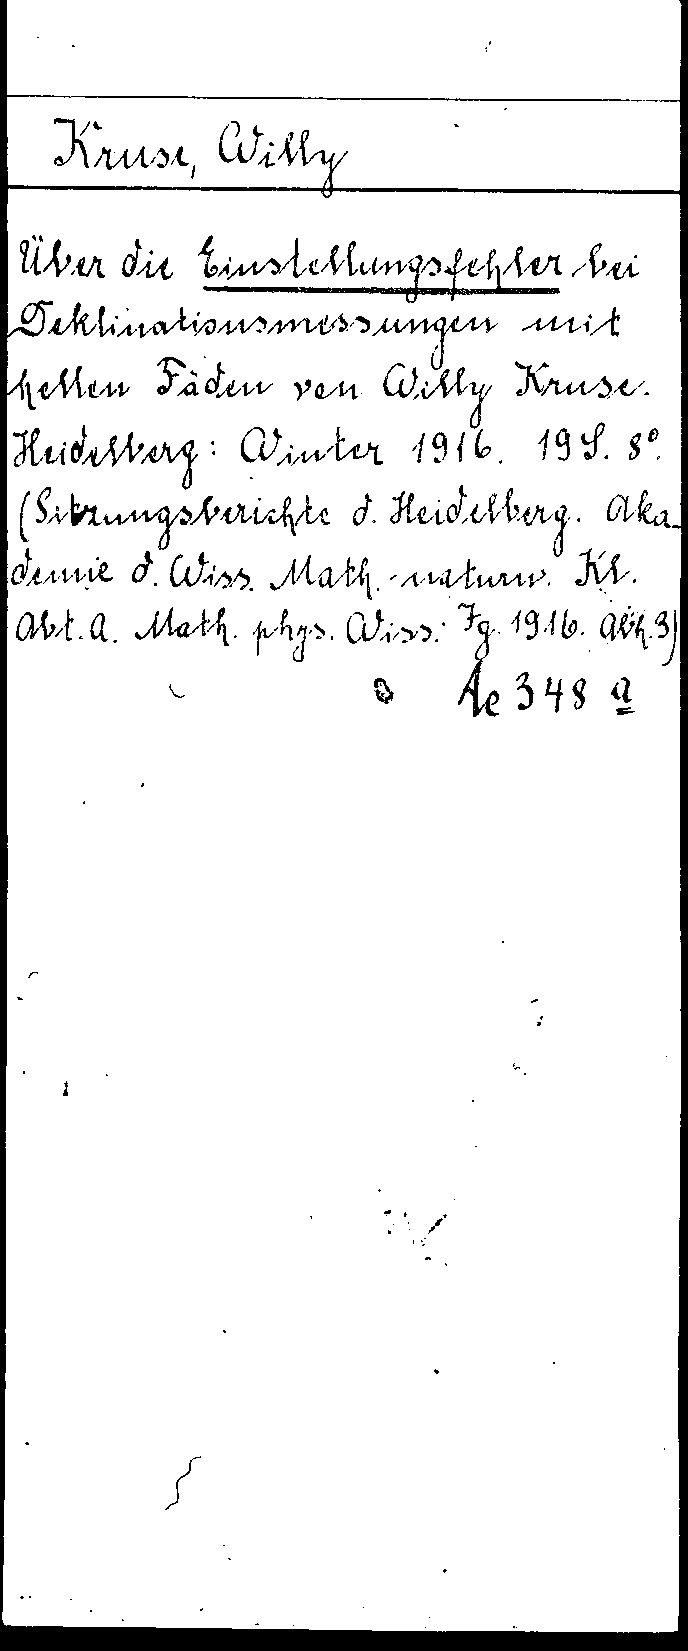 Kruse, Willy
Über die Einstellungsfehler bei
Deklinationsmessungen mit
hellen Fäden von Willy Kruse.
Heidelberg: Winter 1916. 19 S. 8°.
(Sitzungsberichte d. Heidelberg. Aka-
demie d. Wiss. Math.-naturw. Kl.
Abt. A. Math. phys. Wiss. Jg. 1916. Abh. 3)
Ae 348 a